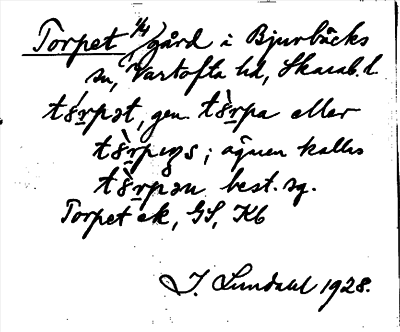 Torpet 1/4 gård i Bjurbäcks
sn, Vartofta hd, Skarab. l.
tɵ́rpət, gen. tɵ̀rpa eller
tɵ̀rpəns; ägnen kallas
tɵ̀rpən best. sg.
Torpet ek, GS, Kb
I. Lundahl 1928.